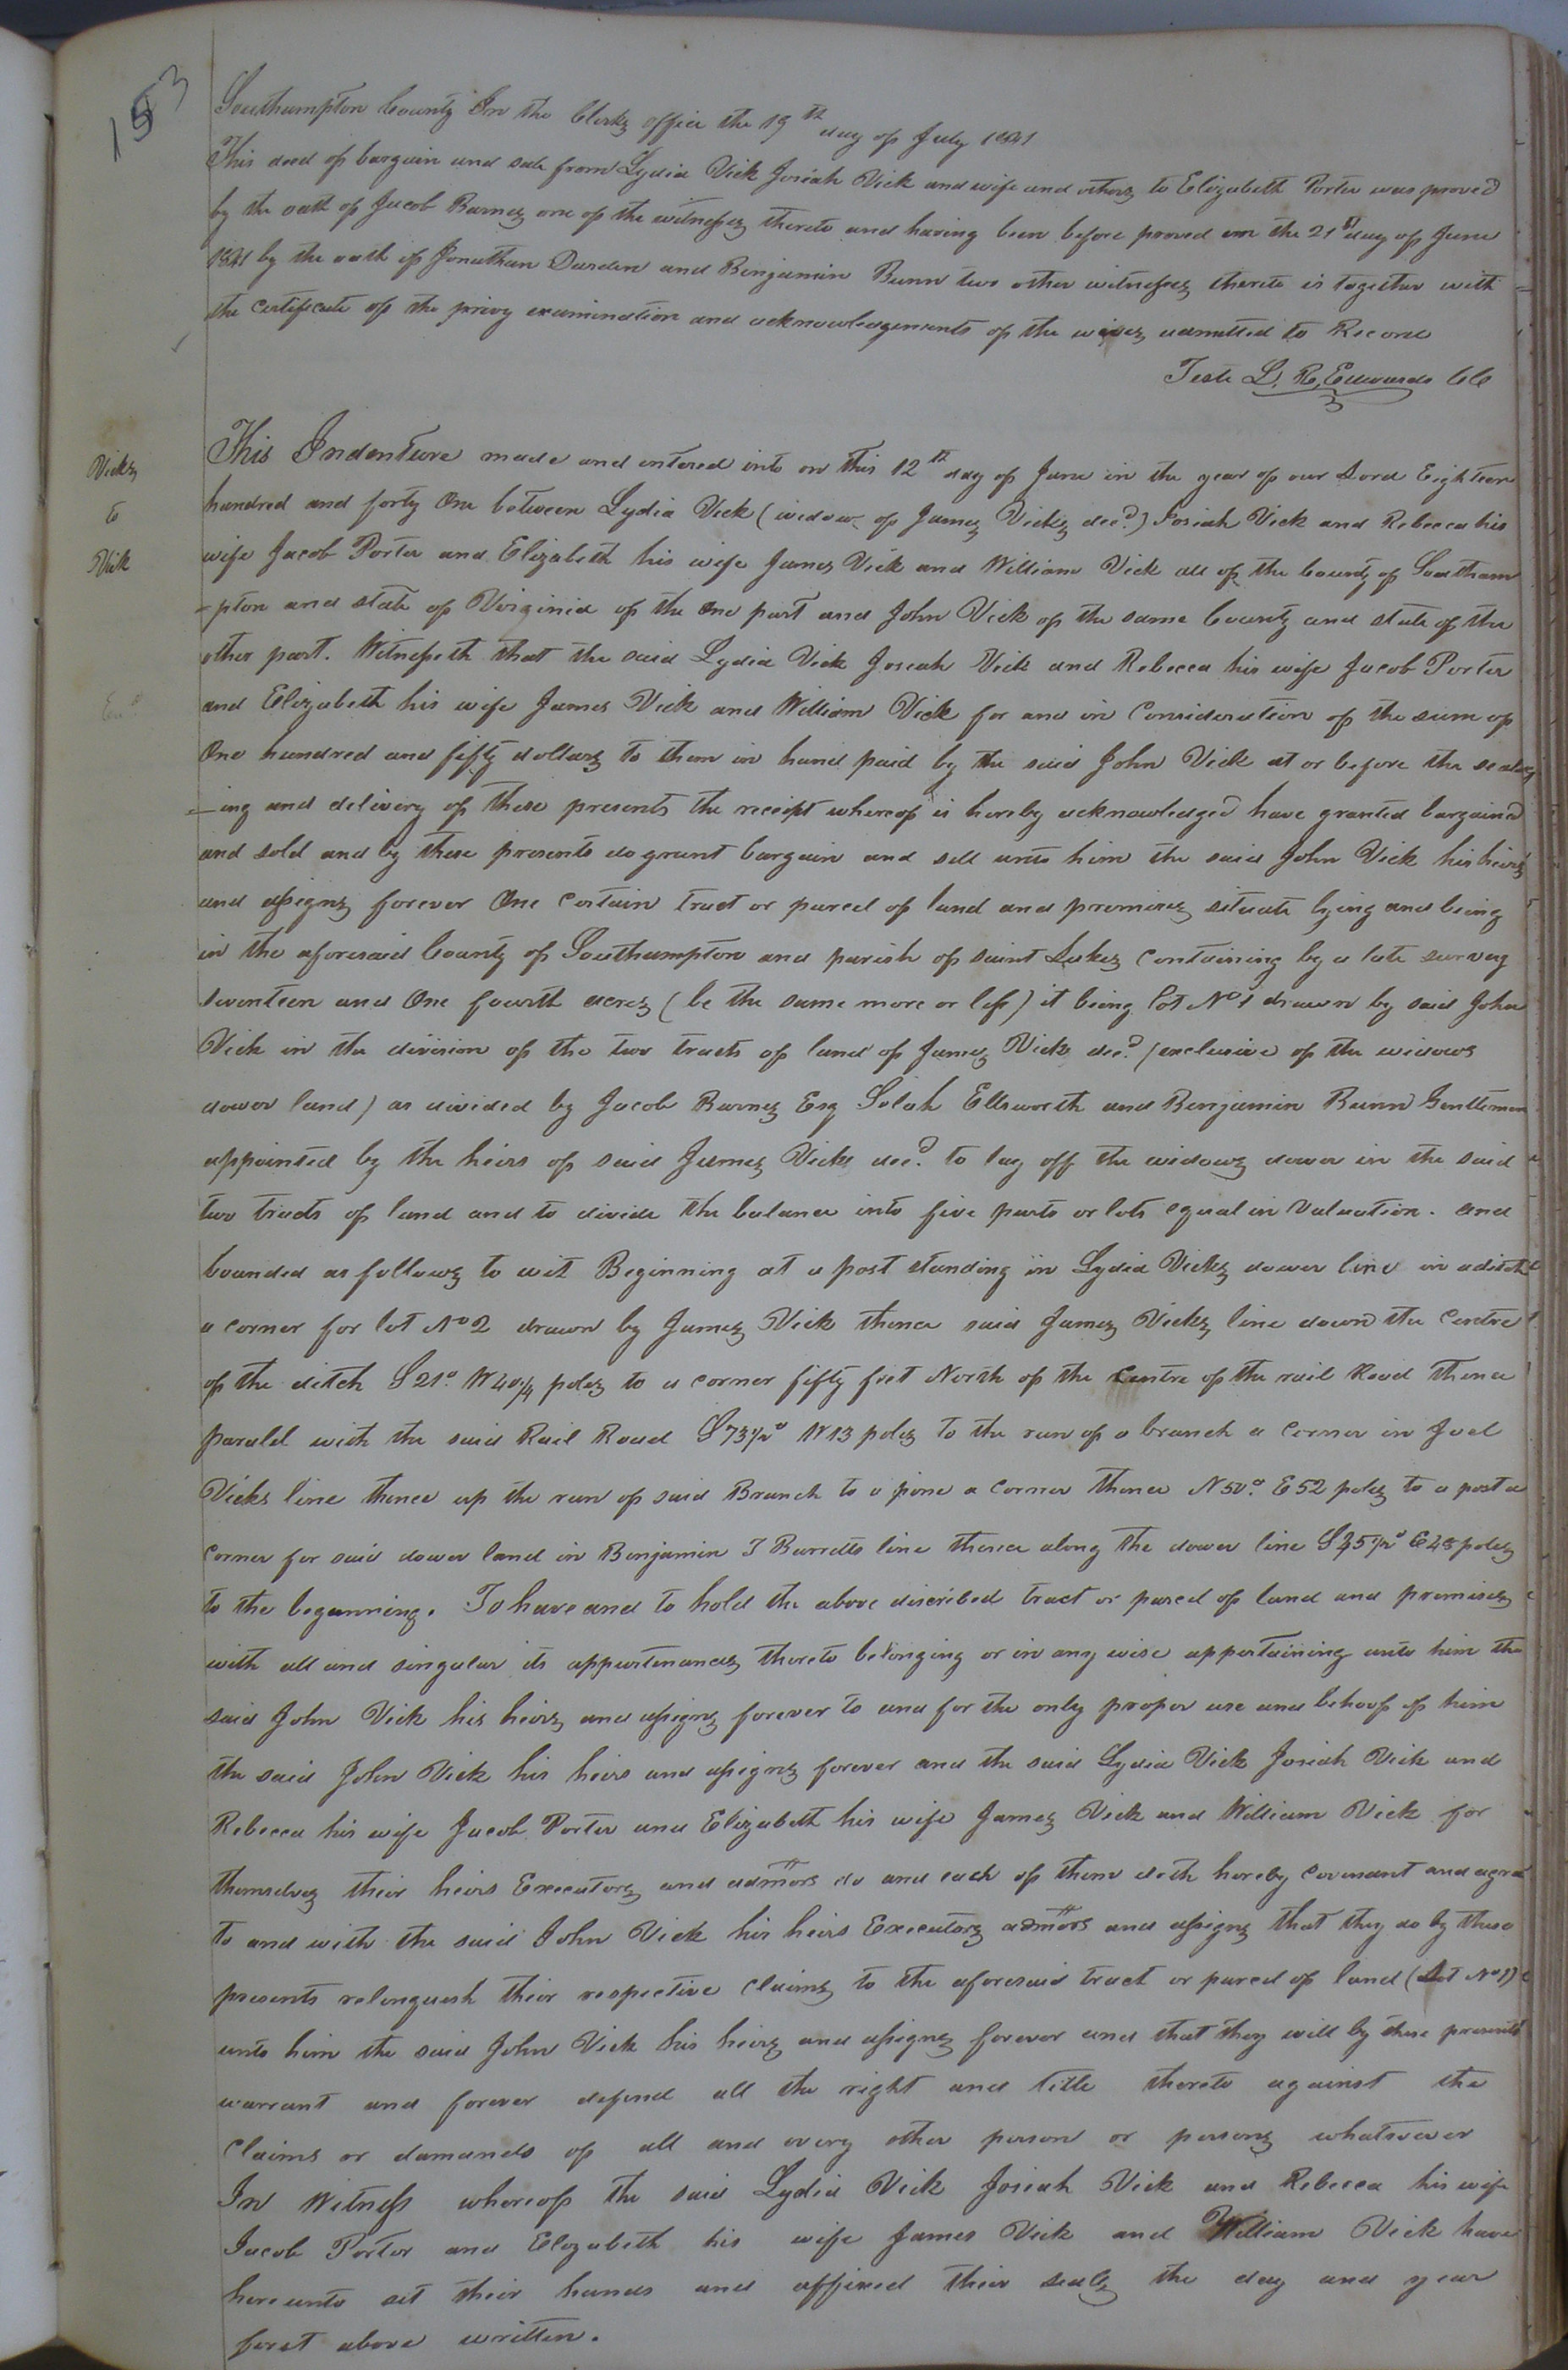 153
Southampton County In the Clerks office the 19th day of July 1841
This deed of bargain and sale from Lydia Vick Josiah Vick and wife and others to Elizabeth Porter was proved
by the oath of Jacob Barnes one of the witnesses thereto and having been before proved on the 21st day of June
1841 by the oath of Jonathan Darden and Benjamin Bunn two other witnesses thereto is together with
the Certificate of the privy examination and acknowledgements of the wives admitted to Record
Teste L. R. Edwards CC
Vicks
to
Vick
This Indenture made and entered into on this 12th day of June in the year of our Lord Eighteen
hundred and forty One between Lydia Vick (widow of James Vicks decd.) Josiah Vick and Rebecca his
wife Jacob Porter and Elizabeth his wife James Vick and William Vick all of the County of Southam
-pton and state of Virginia of the One part and John Vick of the same County and state of the
other part. Witnesseth that the said Lydia Vick Josiah Vick and Rebecca his wife Jacob Porter
and Elizabeth his wife James Vick and William Vick for and in Consideration of the sum of
One hundred and fifty dollars to them in hand paid by the said John Vick at or before the seal
-ing and delivery of these presents the receipt whereof is hereby acknowledged have granted bargained
and sold and by these presents do grant bargain and sell unto him the said John Vick his heirs
and assigns forever One Certain tract or parcel of land and premises situate lying and being
in the aforesaid County of Southampton and parish of saint Lukes Containing by a late survey
seventeen and One fourth acres (be the same more or less) it being lot No 1 drawn by said John
Vick in the division of the two tracts of land of James Vicks decd. (exclusive of the widows
dower land) as divided by Jacob Barnes Esq Selah Ellsworth and Benjamin Bunn Gentlemen
appointed by the heirs of said James Vicks decd. to lay off the widows dower in the said
two tracts of land and to divide the balance into five parts or lots equal in Valuation. and
bounded as follows to wit Beginning at a post standing in Lydia Vicks dower line in a ditch
a corner for lot No 2 drawn by James Vick thence said James Vicks line down the Centre
of the ditch S 21° W 40 1/4 poles to a corner fifty feet North of the Centre of the rail Road thence
paralel with the said Rail Road S 73 1/2° W 13 poles to the run of a branch a Corner in Joel
Vicks line thence up the run of said Branch to a pine a Corner thence N 50° E 52 poles to a post a
Corner for said dower land in Benjamin T Barretts line thence along the dower line S 45 1/2° E 48 poles
to the begunning. To have and to hold the above discribed tract or parcel of land and premises
with all and singular its appurtenances thereto belonging or in any wise appertaining unto him the
said John Vick his heirs and assigns forever to and for the only proper use and behoof of him
the said John Vick his heirs and assigns forever and the said Lydia Vick Josiah Vick and
Rebecca his wife Jacob Porter and Elizabeth his wife James Vick and William Vick for
themselves their heirs Executors and admors do and each of them doth hereby covenant and agree
to and with the said John Vick his heirs Executors admors and assigns that they do by these
presents relenquesh their respective Claims to the aforesaid tract or parcel of land (Lot No 1)
unto him the said John Vick his heirs and assigns forever and that they will by these presents
warrant and forever defend all the right and title thereto against the
Claims or damands of all and every other person or persons whatsoever
In Witness whereof the said Lydia Vick Josiah Vick and Rebecca his wife
Jacob Porter and Elizabeth his wife James Vick and William Vick have
hereunto set their hands and affixed their seals the day and year
forst above written.